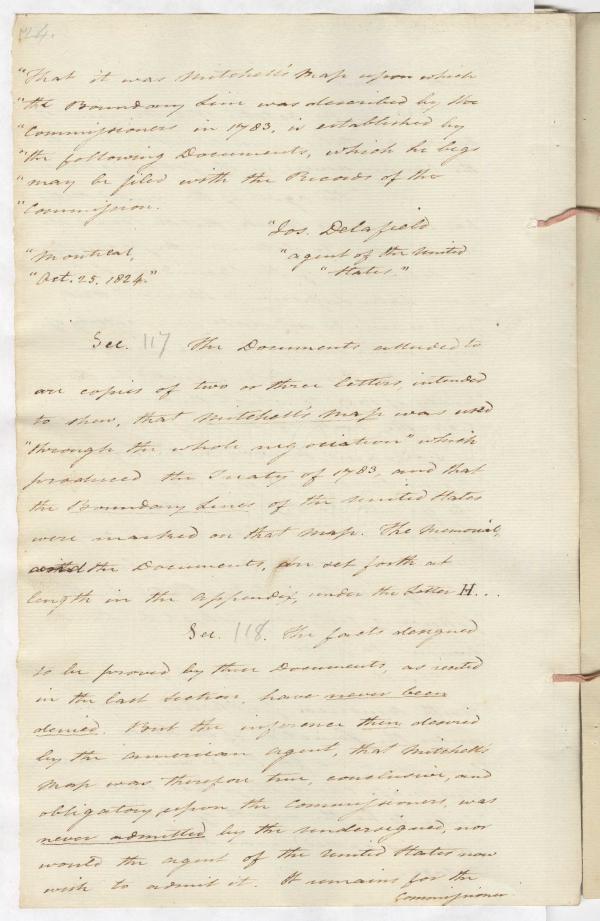 24.
"That it was Mitchell's Map upon which
"the Boundary Line was described by the
"Commissioners in 1783, is established by
"the following Documents, which he begs
"may be filed with the Records of the
"Commission.
"Jos. Delafield
"Montreal, "agent of the United
"Oct. 25. 1824." "States."
Sec. 117 The Documents alluded to
are copies of two or three letters, intended
to shew, that Mitchell's Map was used
"through the whole negociation" which
produced the Treaty of 1783, and that
the Boundary Lines of the United States
were marked on that Map. The Memorial,
the Documents, are set forth at
length in the appendix, under the Letter H...
Sec. 118. The facts designed
to be proved by these Documents, as recited
in the last section, have never been
denied. But the inference then desired
by the american agent, that Mitchell's
Map was therefore true, conclusive, and
obligatory upon the Commissioners, was
never admitted by the undersigned, nor
would the agent of the United States now
wish to admit it. It remains for the
Commissioner